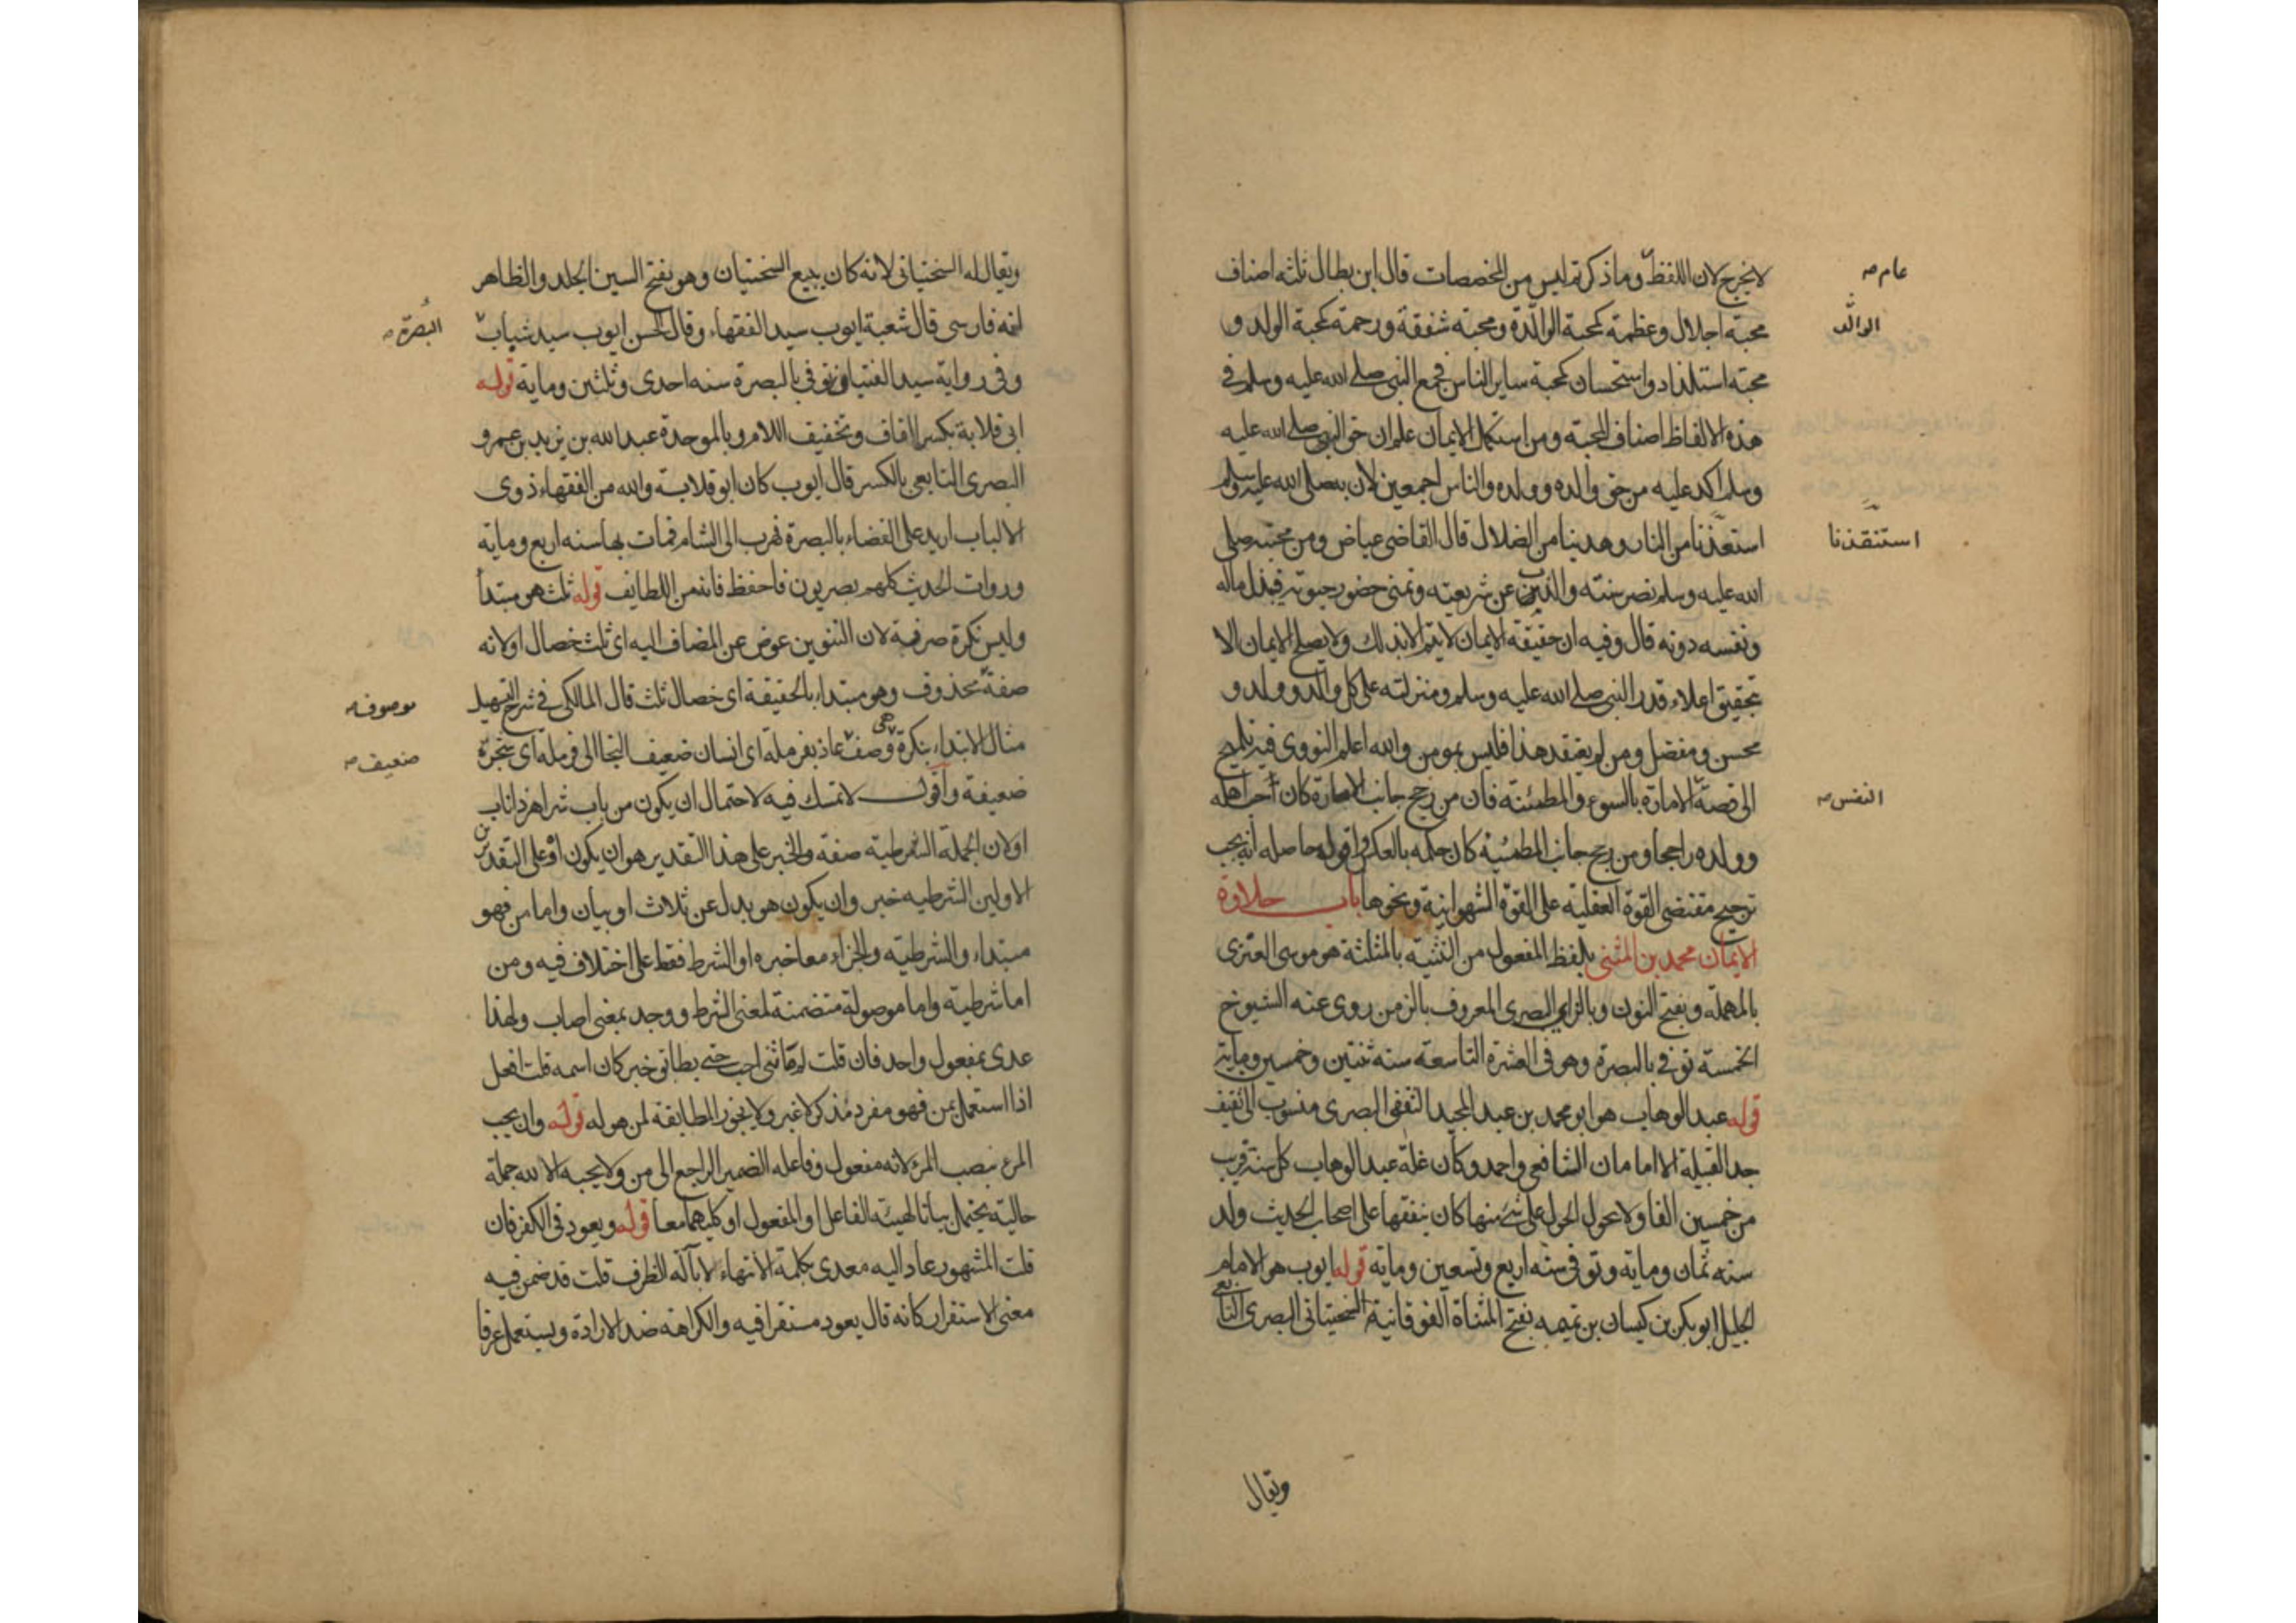 لا يخرج لان اللفظ وما ذكرتم ليس من المخصصات قال ابن بطال ثلثه اصناف
عام صح
محبة اجلال وعظمة كمحبة الوالدة ومحبة شفقة ورحمة كمحبة الولد و
الوالد
محبة استلذاذ واستحسان كمحبة ساير الناس فجمع النبي صلى الله عليه وسلم في
هذه الالفاظ اصناف المحبة ومن استكمل الايمان علم ان حق النبي صلى الله عليه
وسلم اكد عليه من حق والده وولده والناس اجمعين لان به صلى الله عليه وسلم
من النار وهدينا من الضلال قال القاضي عياض ومن محبته صلى
استنقذنا
الله عليه وسلم نصر سنته والذب عن شريعته وتمنى حضور حيوته فيبذل ماله
ونفسه دونه قال وفيه ان حقيقة الايمان لا يتم الا بذلك ولا يصلح الايمان الا
بتحقيق اعلاء قدر النبي صلى الله عليه وسلم ومنزلته على كل والد وولد و
محسن ومفضل ومن لم يعتقد هذا فليس بمومن والله اعلم النووي فيه تلميح
الى قصة الامارة بالسوء والمطمئنة فان من رجح جانب الامارة كان احب اهله
النفس صح
وولده راجحا ومن رجح جانب المطمئنة كان حكمه بالعكس واقول حاصله انه يجب
ترجيح مقتضى القوة العقلية على القوة الشهوانية ونحوها باب حلاوة
الايمان محمد بن المثنى بلفظ المفعول من التثنية بالمثلثة هو موسى العنزي
بالمهملة وبفتح النون وبالزاي البصري المعروف بالزمن روى عنه الشيوخ
الخمسة توفي بالبصرة وهو في العشرة التاسعة سنه ثنتين وخمسين ومايتين
قوله عبد الوهاب هو ابو محمد بن عبد المجيد الثقفي البصري منسوب الى ثقيف
جد القبيلة الامامان الشافعي واحمد وكان غلة عبد الوهاب كل سنة قريب
من خمسين الفا ولا يحول الحول على شئ منها كان ينفقها على اصحاب الحديث ولد
سنه ثمان وماية وتوفي سنه اربع وتسعين وماية قوله ايوب هو الامام
الجليل ابو بكر بن كيسان بن تميمه بفتح المثناة الفوقانية السختياني البصري التابعي
ويقال
ويقال له السختياني لانه كان يبيع السختيان وهو بفتح السين الجلد والظاهر
انه فارسي قال شعبة ايوب سيد الفقهاء وقال الحسن ايوب سيد شباب
البصرة صح
وفي رواية سيد الفتيان توفي بالبصرة سنه احدى وثلثين وماية قوله
ابي قلابة بكسر القاف وتخفيف اللام وبالموحدة عبد الله بن زيد بن عمرو
البصري التابعي بالكسر قال ايوب كان ابو قلابة والله من الفقهاء ذوي
الالباب اريد على القضاء بالبصرة فهرب الى الشام فمات بها سنه اربع وماية
وروات الحديث كلهم بصريون فاحفظ فانه من اللطايف قوله ثلث هو مبتدأ
وليس نكرة صرفة لان التنوين عوض عن المضاف اليه اي ثلث خصال او لانه
صفة محذوف وهو مبتداء بالحقيقة اي خصال ثلث قال المالكي في شرح التسهيل
موصوف صح
مثال الابتداء بنكرة وصف عاذ بقرملة اي انسان ضعيف التجا الى قرملة اي شجرة
ضعيف صح
ضعيفة واقول لا تمسك فيه لاحتمال ان يكون من باب شر اهر ذا ناب
او لان الجملة الشرطية صفه والخبر على هذا التقدير هو ان يكون او على التقديرين
الاولين الشرطيه خبر وان يكون هو بدل عن ثلاث او بيان واما من فهو
مبتداء والشرطيه والجزاء معا خبره او الشرط فقط على اختلاف فيه ومن
اما شرطية واما موصولة متضمنة لمعنى الشرط ووجد بمعنى اصاب ولهذا
عدى بمفعول واحد فان قلت لم ما ثنى احب حتى يطابق خبر كان اسمه قلت افعل
اذا استعمل بمن فهو مفرد مذكر لا غير ولا يجوز المطابقة لمن هو له قوله وان يحب
المرء بنصب المرء لانه مفعول وفاعله الضمير الراجع الى من ولا يحبه الا لله جملة
حالية يحتمل بيانا لهيئة الفاعل او المفعول او كليهما معا قوله ويعود في الكفر فان
قلت المشهور عاد اليه معدى بكلمة الانتهاء لا بآلة الظرف قلت قد ضمن فيه
معنى الاستقرار كانه قال يعود مستقرا فيه والكراهة ضد الارادة ويستعمل عرفا